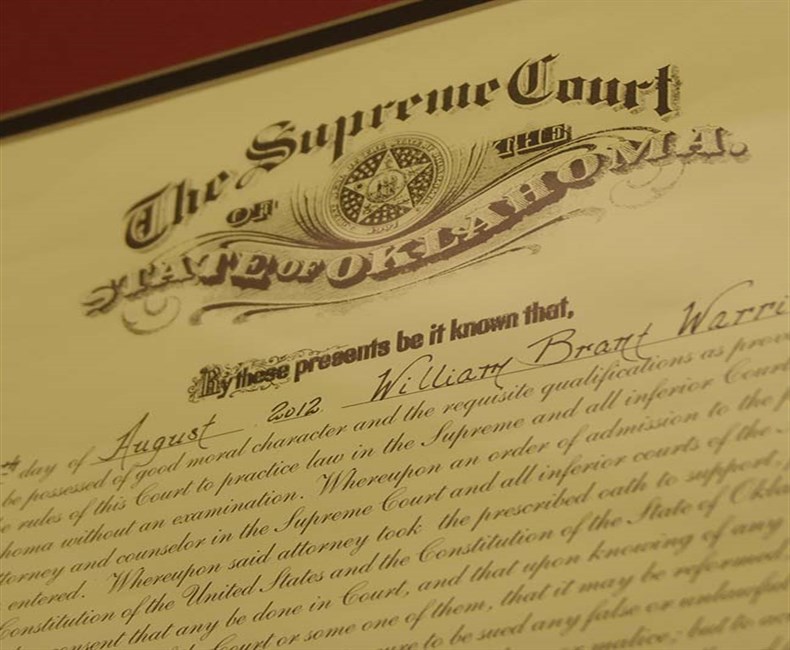 The Supreme Court
OF THE
STATE OF OKLAHOMA.
By these presents be it known that,
th day of August 2012 William Brant
be possessed of good moral character and the requisite qualifications as
rules of this Court to practice law in the Supreme and all inferior
without an examination. Whereupon an order of admission to the
and counselor in the Supreme Court and all inferior courts of the
entered. Whereupon said attorney took the prescribed oath to support,
Constitution of the United States and the Constitution of the State of
that any be done in Court, and that upon knowing of any
Court or some one of them, that it may be reformed
to be sued any false or
or malice; but to